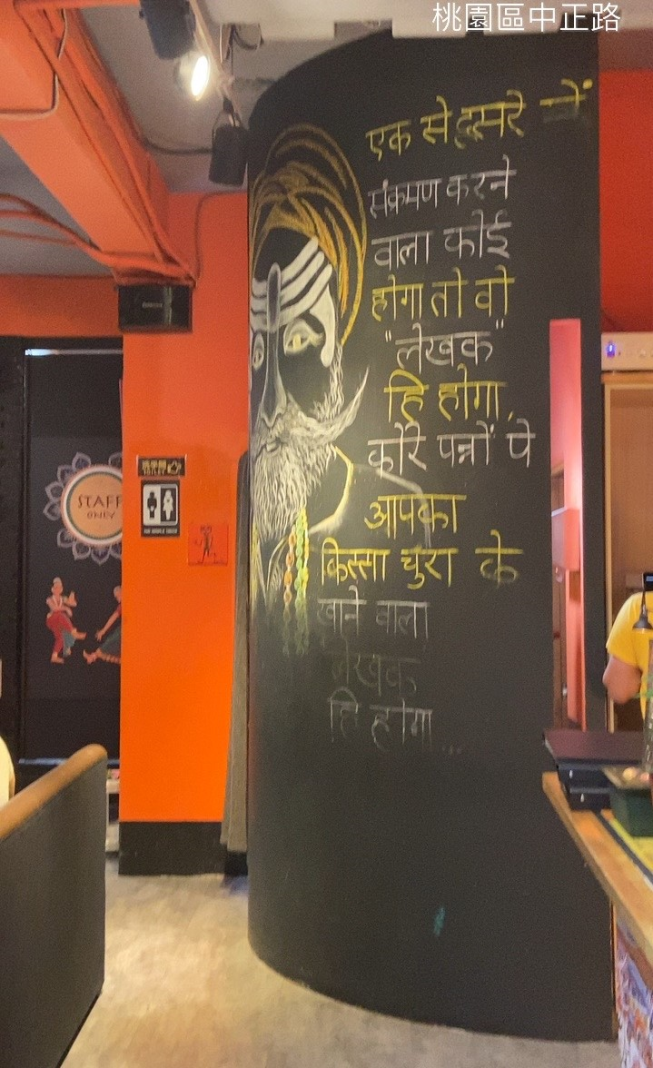 桃園區中正路
एक से दूसरे में
संक्रमण करने
वाला कोई
होगा तो वो
"लेखक"
हि होगा,
कोरे पन्नों पे
आपका
किस्सा चुरा के
खाने वाला
लेखक
हि होगा...
STAFF
ONLY